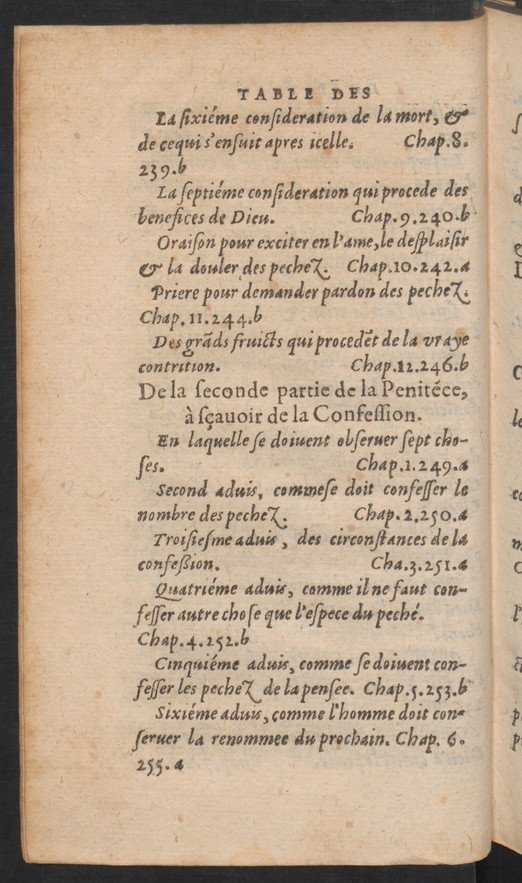 TABLE DES
La ſixiéme conſideration de la mort, &
de ce qui s'enſuit apres icelle. Chap.8.
239.b
La ſeptiéme conſideration qui procede des
benefices de Dieu. Chap.9.240.b
Oraiſon pour exciter en l'ame, le deſplaiſir
& la douler des pechez. Chap.10.242.a
Priere pour demander pardon des pechez.
Chap.11.244.b
Des grãds fruicts qui procedẽt de la vraye
contrition. Chap.12.246.b
De la ſeconde partie de la Penitẽce,
à ſçauoir de la Confeſſion.
En laquelle ſe doiuent obſeruer ſept cho-
ſes. Chap.1.249.a
Second aduis, comme ſe doit confeſſer le
nombre des pechez. Chap.2.250.a
Troiſieſme aduis, des circonſtances de la
confeßion. Cha.3.251.a
Quatriéme aduis, comme il ne faut con-
feſſer autre choſe que l'eſpece du peché.
Chap.4.252.b
Cinquiéme aduis, comme ſe doiuent con-
feſſer les pechez de la penſee. Chap.5.253.b
Sixiéme aduis, comme l'homme doit con-
ſeruer la renommee du prochain. Chap. 6.
255.a